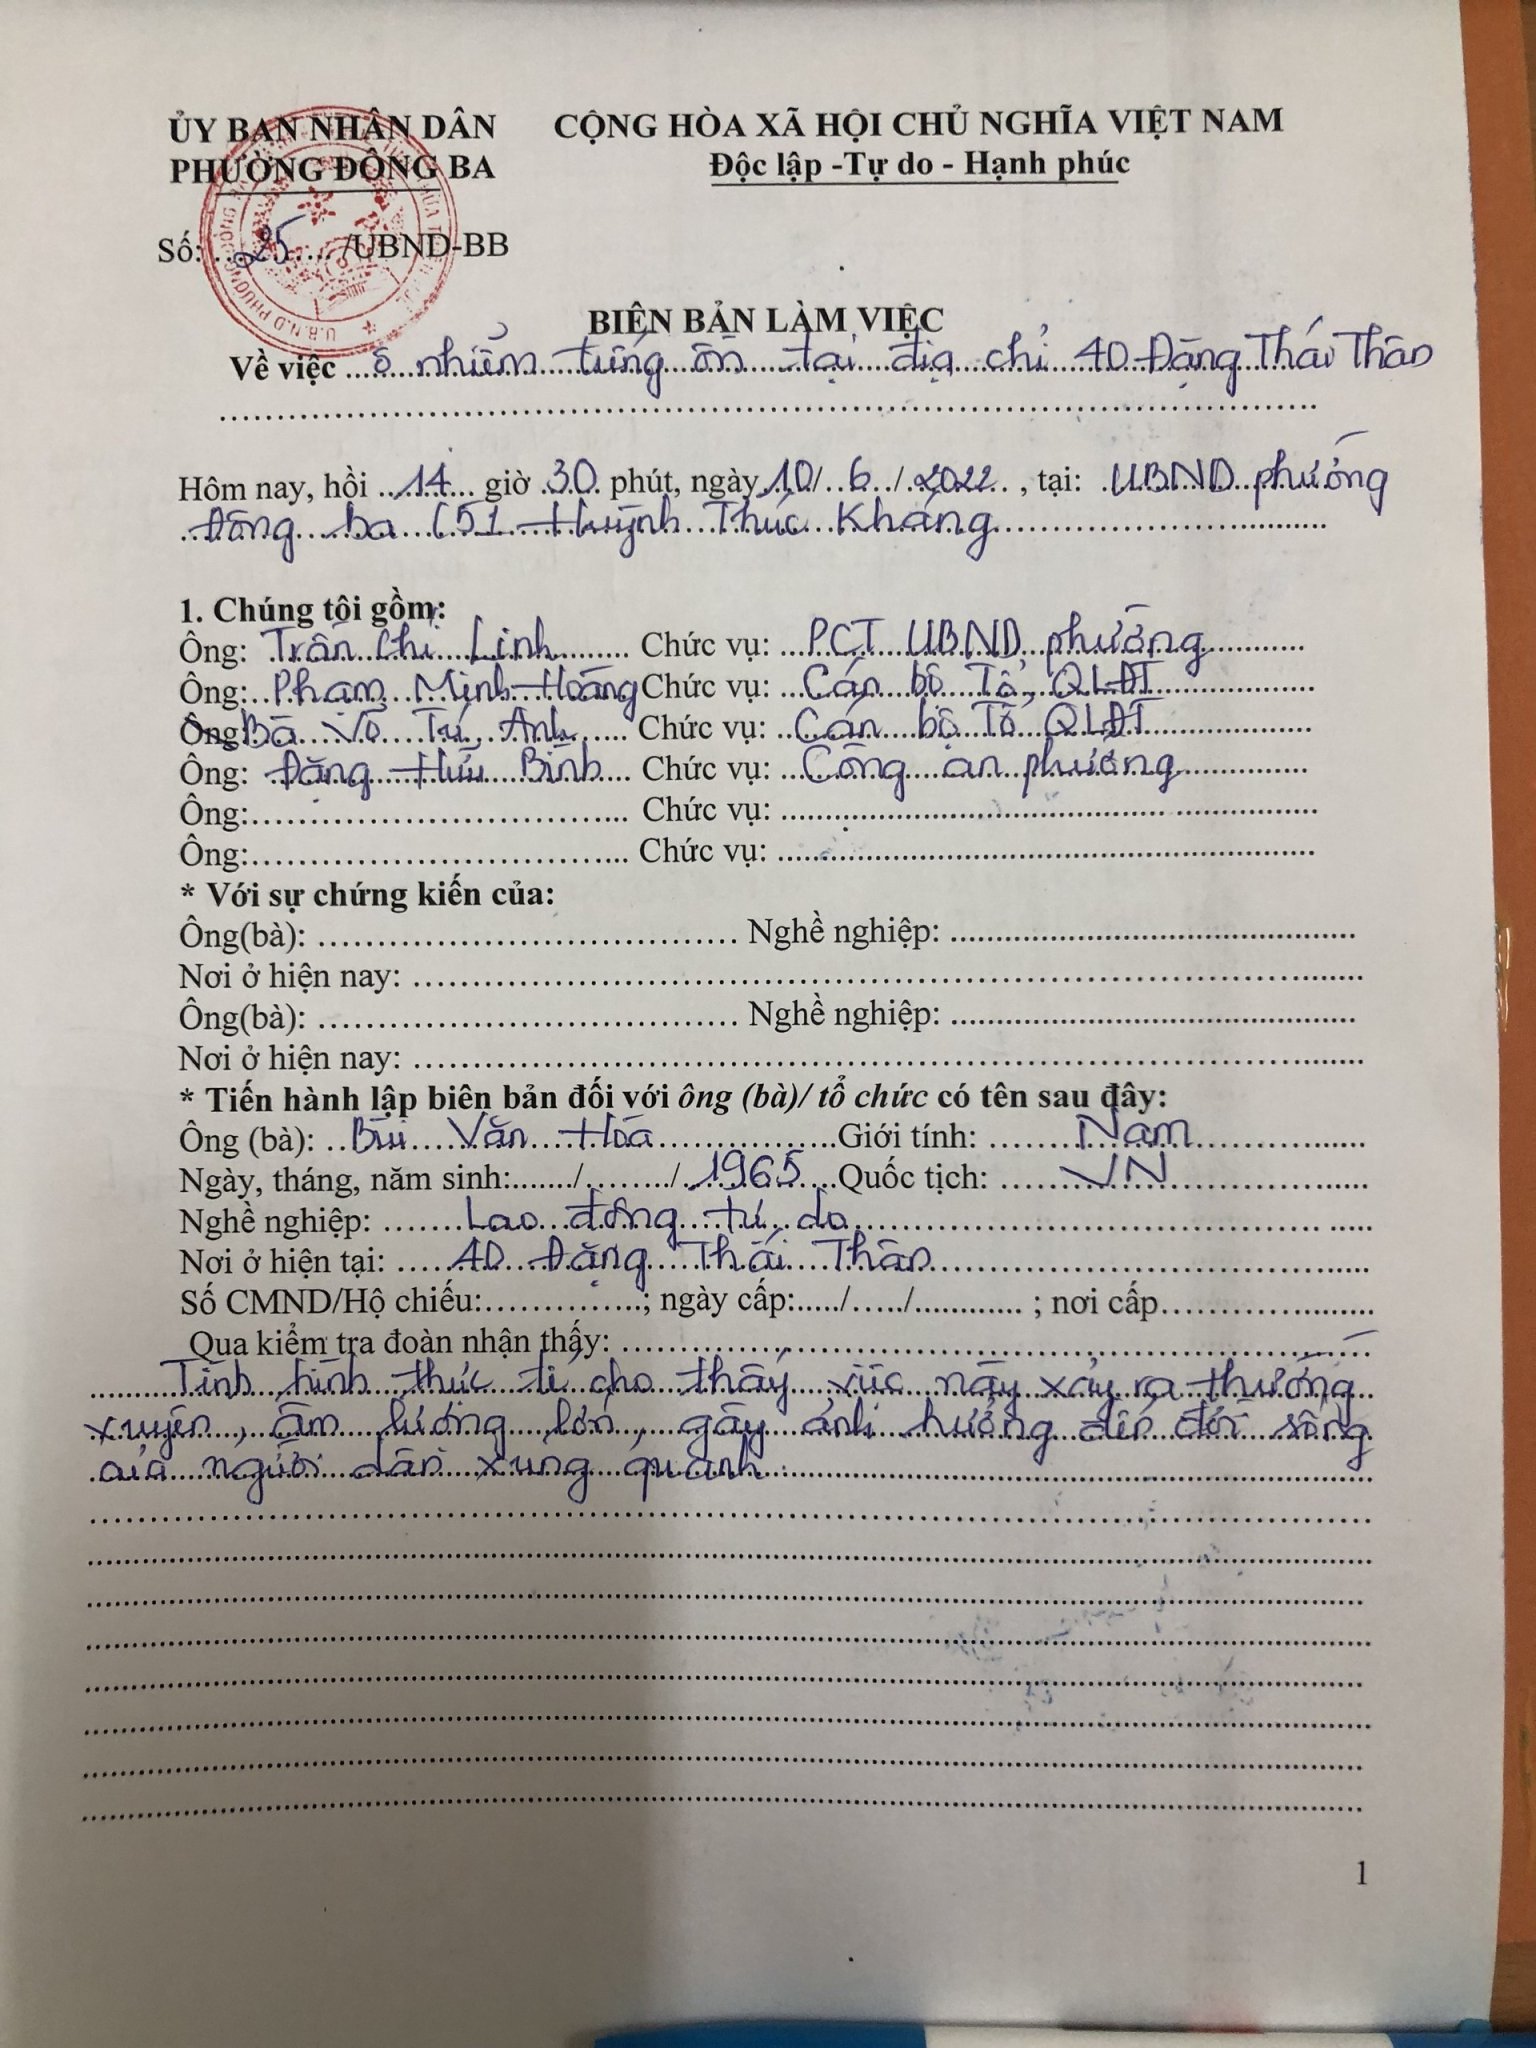 ỦY BAN NHÂN DÂN CỘNG HÒA XÃ HỘI CHỦ NGHĨA VIỆT NAM
PHƯỜNG ĐÔNG BA Độc lập -Tự do - Hạnh phúc
Số: ..25..... /UBND-BB
BIÊN BẢN LÀM VIỆC
Về việc ...ô nhiễm tiếng ồn tại địa chỉ 40 Đặng Thái Thân
Hôm nay, hồi ..14... giờ .30. phút, ngày.10/..6../.2022.. , tại: .UBND phường
Đông ba (51 Huỳnh Thúc Kháng
1. Chúng tôi gồm:
Ông: Trần Chí Linh Chức vụ: PCT UBND phường
Ông: Phạm Minh Hoàng Chức vụ: Cán bộ Tổ QLĐT
Ông Bà Võ Tú Anh Chức vụ: Cán bộ Tổ QLĐT
Ông: Đặng Hữu Bình Chức vụ: Công an phường
Ông:.................... Chức vụ: ....................
Ông:.................... Chức vụ: ....................
* Với sự chứng kiến của:
Ông(bà): .................... Nghề nghiệp: ....................
Nơi ở hiện nay: ....................
Ông(bà): .................... Nghề nghiệp: ....................
Nơi ở hiện nay: ....................
* Tiến hành lập biên bản đối với ông (bà)/ tổ chức có tên sau đây:
Ông (bà): Bùi Văn Hóa Giới tính: Nam
Ngày, tháng, năm sinh:......./......../.1965 Quốc tịch: VN
Nghề nghiệp: Lao động tự do
Nơi ở hiện tại: 40 Đặng Thái Thân
Số CMND/Hộ chiếu:..............; ngày cấp:...../...../............ ; nơi cấp....................
Qua kiểm tra đoàn nhận thấy: ....................
Tình hình thực tế cho thấy việc này xảy ra thường
xuyên, âm lượng lớn, gây ảnh hưởng đến đời sống
của người dân xung quanh.
1